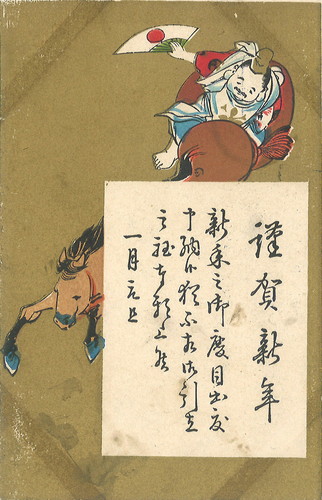 謹賀新年
新年之御慶目出度
申納候猶不相御引立
之程奉願上候
一月元旦